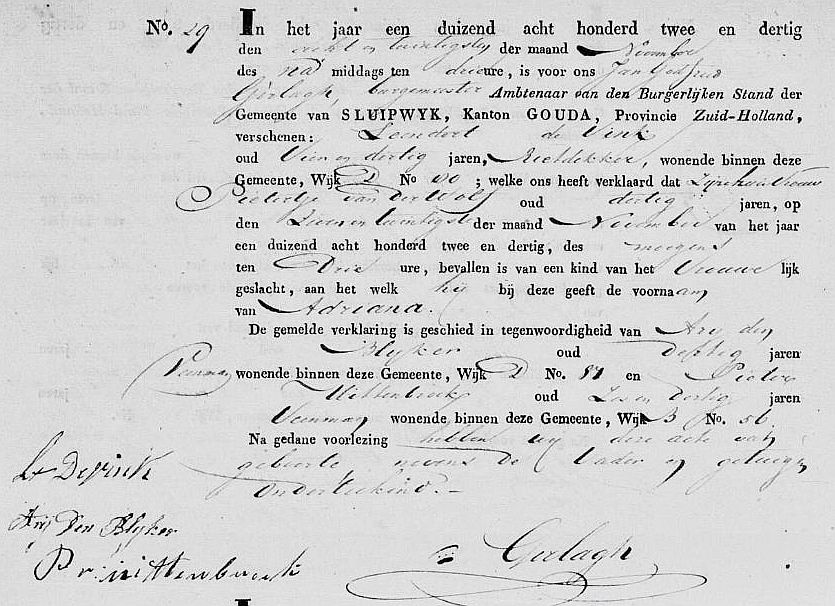 No. 29 In het jaar een duizend acht honderd twee en dertig
den acht en twintigsten der maand November
des na middags ten drie ure, is voor ons Jan
Gerlagh, burgemeester Ambtenaar van den Burgerlijken Stand der
Gemeente van SLUIPWYK, Kanton GOUDA, Provincie Zuid-Holland,
verschenen: Leendert de Vink
oud Vier en dertig jaren, Rietdekker, wonende binnen deze
Gemeente, Wijk D No 80 ; welke ons heeft verklaard dat Zijne huisvrouw
Pietertje van der Wolf oud dertig jaren, op
den Zeven en twintigsten der maand November van het jaar
een duizend acht honderd twee en dertig, des morgens
ten Drie ure, bevallen is van een kind van het Vrouwe lijk
geslacht, aan het welk hij bij deze geeft de voornaam
van Adriana.
De gemelde verklaring is geschied in tegenwoordigheid van Ary den
Blyker oud Veenman jaren
wonende binnen deze Gemeente, Wijk D No. en Pieter
Wittenbroek oud Zes en dertig jaren
Veenman wonende binnen deze Gemeente, Wijk B No. 56.
Na gedane voorlezing hebben wy deze acte van
geboorte, nevens de Vader en getuigen
Onderteekend.-
L De Vink
Arij Den Blyker
Pr: wittenbroek
Gerlagh